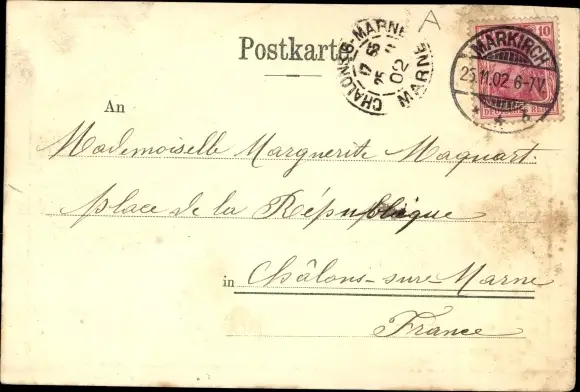 Postkarte
CHALONS-S-MARNE
MARNE
02
A
10
DEUTSCHES REICH
MARKIRCH
25.11.02 6-7V.
* * b
An
Mademoiselle Marguerite Maquart.
place de la République
in Châlons-sur-Marne
France